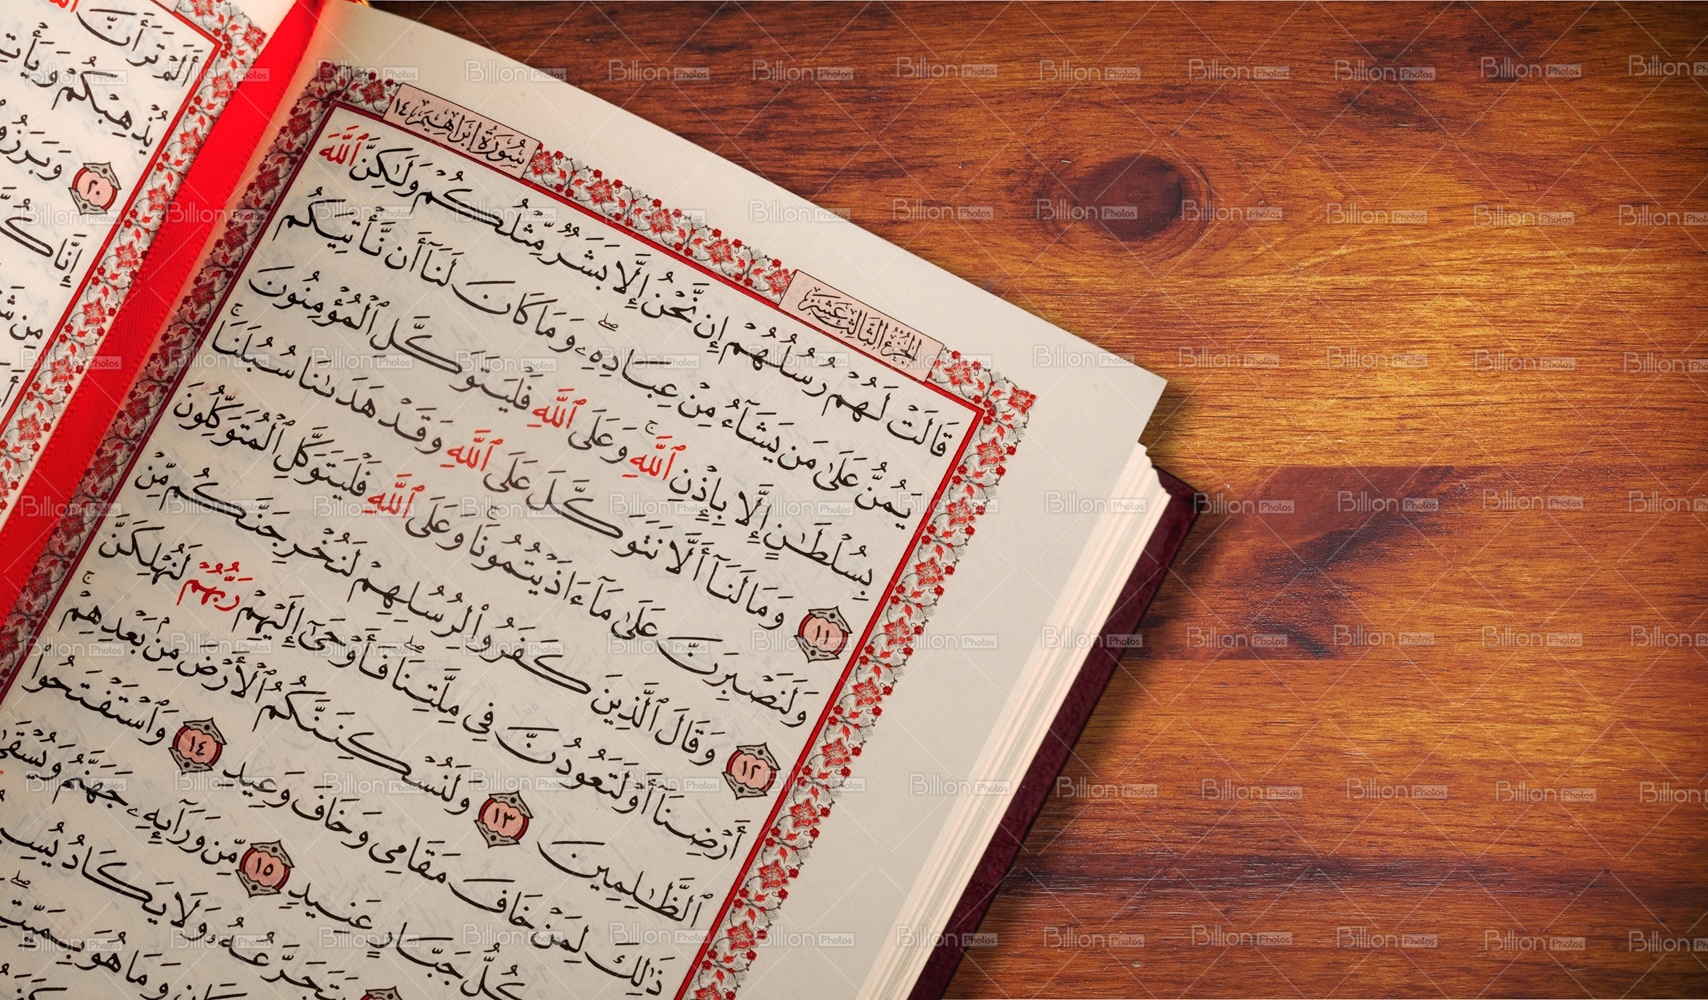 الجزء الثالث عشر
سورة إبراهيم ١٤
قَالَتْ لَهُمْ رُسُلُهُمْ إِن نَّحْنُ إِلَّا بَشَرٌ مِّثْلُكُمْ وَلَٰكِنَّ ٱللَّهَ
يَمُنُّ عَلَىٰ مَن يَشَآءُ مِنْ عِبَادِهِۦ ۖ وَمَا كَانَ لَنَآ أَن نَّأْتِيَكُم
بِسُلْطَٰنٍ إِلَّا بِإِذْنِ ٱللَّهِ ۚ وَعَلَى ٱللَّهِ فَلْيَتَوَكَّلِ ٱلْمُؤْمِنُونَ
١١ وَمَا لَنَآ أَلَّا نَتَوَكَّلَ عَلَى ٱللَّهِ وَقَدْ هَدَىٰنَا سُبُلَنَا ۚ
وَلَنَصْبِرَنَّ عَلَىٰ مَآ ءَاذَيْتُمُونَا ۚ وَعَلَى ٱللَّهِ فَلْيَتَوَكَّلِ ٱلْمُتَوَكِّلُونَ
١٢ وَقَالَ ٱلَّذِينَ كَفَرُوا۟ لِرُسُلِهِمْ لَنُخْرِجَنَّكُم مِّنْ
أَرْضِنَآ أَوْ لَتَعُودُنَّ فِى مِلَّتِنَا ۖ فَأَوْحَىٰٓ إِلَيْهِمْ رَبُّهُمْ لَنُهْلِكَنَّ
ٱلظَّٰلِمِينَ ١٣ وَلَنُسْكِنَنَّكُمُ ٱلْأَرْضَ مِنۢ بَعْدِهِمْ ۚ
ذَٰلِكَ لِمَنْ خَافَ مَقَامِى وَخَافَ وَعِيدِ ١٤ وَٱسْتَفْتَحُوا۟
كُلُّ جَبَّارٍ عَنِيدٍ ١٥ مِّن وَرَآئِهِۦ جَهَنَّمُ وَيُسْقَىٰ
يَتَجَرَّعُهُۥ وَلَا يَكَادُ يُسِيغُهُۥ
وَمَا هُوَ بِمَيِّتٍ ۖ
أَلَمْ تَرَ أَنَّ
يُذْهِبْكُمْ وَيَأْتِ
٢٠ وَبَرَزُوا۟
إِنَّا كُنَّا
Billion Photos